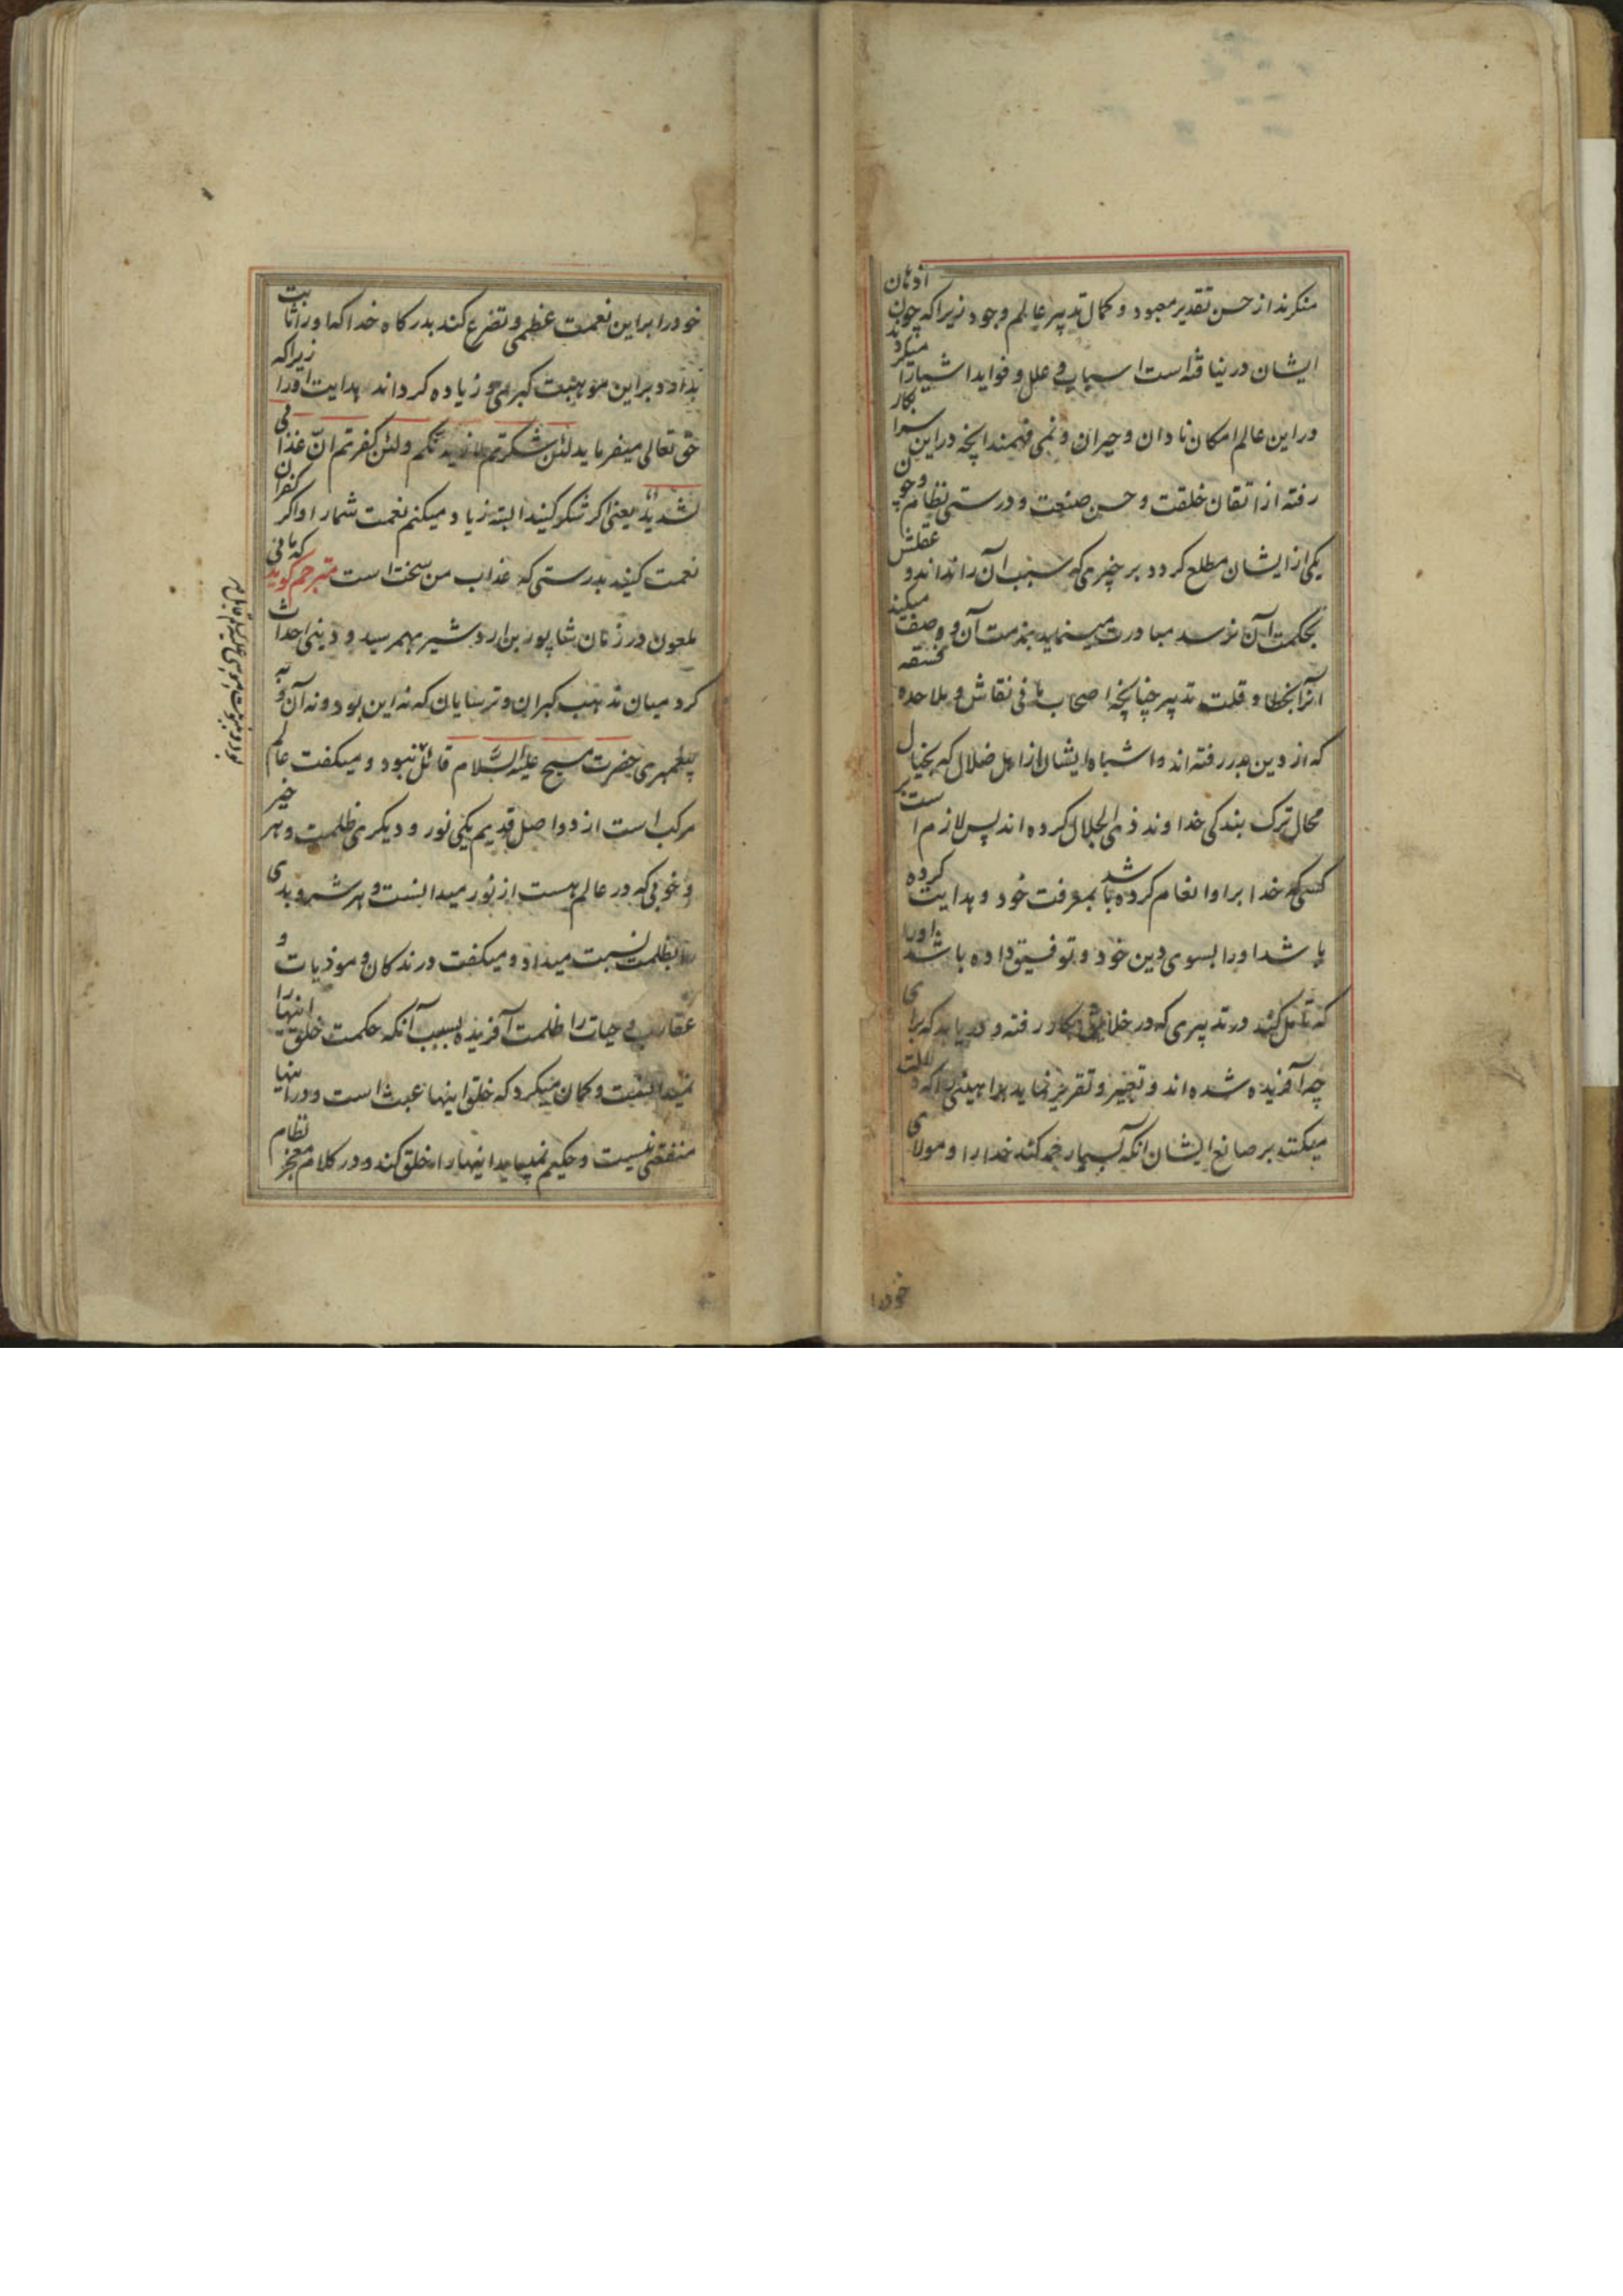 منکرند از حسن تقدیر معبود و کمال تدبیر عالم وجود زیرا که چون اذهان
ایشان در نیافته است اسباب و علل و فواید اشیا را میکردند
در این عالم امکان نادان و حیران و نمی فهمند آنچه در این سرا بکار
رفته از اتقان خلقت و حسن صنعت و درستی نظام و چون
یکی از ایشان مطلع گردد بر چیزی که سبب آن را نداند و عقلش
بحکمت آن نرسد مبادرت مینماید بمذمت آن و وصف میکند
آنرا بخطا و قلت تدبیر چنانچه اصحاب مانی نقاش و ملاحده فسقه
که از دین بدر رفته اند و اشباه ایشان از اهل ضلال که بخیال
محال ترک بندگی خداوند ذی الجلال کرده اند پس لازم است بر
کسی که خدا بر او انعام کرده باشد بمعرفت خود و هدایت کرده
باشد او را بسوی دین خود و توفیق داده باشد او را
که تامل کند در تدبیری که در خلایق بکار رفته و دریابد که برای
چه آفریده شده اند و تعبیر و تقریر نماید براهینی را که دلالت
میکنند بر صانع ایشان آنکه بسیار حمد کند خدا را و مولای
خود را
خود را بر این نعمت عظمی و تضرع کند بدرگاه خدا که او را ثابت
بدارد بر این موهبت کبری و زیاده گرداند هدایت او را زیرا که
حق تعالی میفرماید لئن شکرتم لازیدنکم ولئن کفرتم ان عذابی
لشدید یعنی اگر شکر کنید البته زیاد میکنم نعمت شما را و اگر کفران
نعمت کنید بدرستی که عذاب من سخت است مترجم گوید که مانی
ملعون در زمان شاپور بن اردشیر بهم رسید و دینی احداث
کرد میان مذهب گبران و ترسایان که نه این بود و نه آن و به
پیغمبری حضرت مسیح علیه السلام قائل نبود و میگفت عالم
مرکب است از دو اصل قدیم یکی نور و دیگری ظلمت و هر خیر
و خوبی که در عالم هست از نور میدانست و هر شر و بدی
را بظلمت نسبت میداد و میگفت درندگان و موذیات و
عقارب و حیات را ظلمت آفریده بسبب آنکه حکمت خلق اینها را
نمیدانست و گمان میکرد که خلق اینها عبث است و در اینها
منفعتی نیست و حکیم نمیباید اینها را خلق کند و در کلام معجز نظام